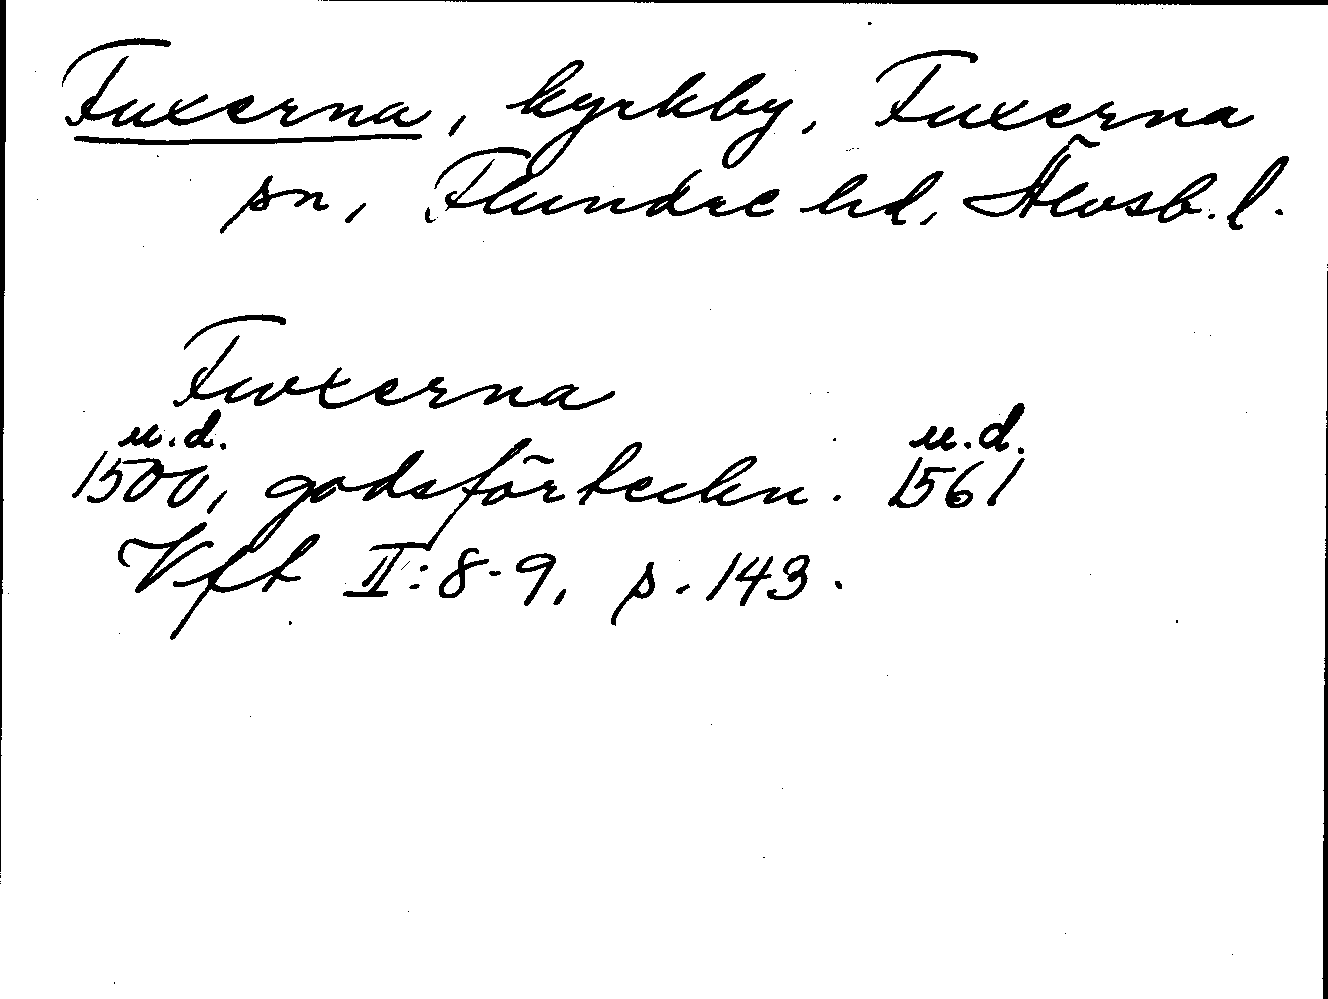 Fuxerna, kyrkby, Fuxerna
sn, Flundre hd, Älvsb. l.
Fwxerna
u.d. u.d.
1500, godsförteckn. 1561
Vft II:8-9, s. 143.